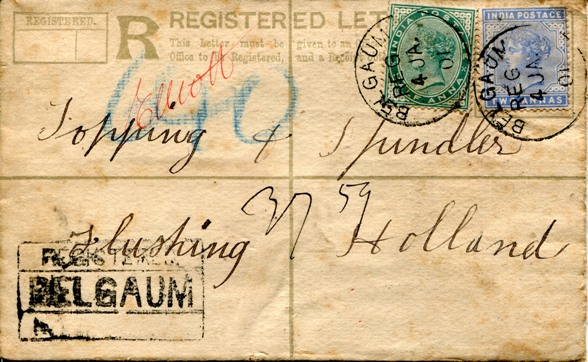 REGISTERED.
R REGISTERED LET
This Letter must be given to an
Office to Registered, and a Receipt
Elliott
INDIA POSTAGE
ANNA
INDIA POSTAGE
TWO ANNAS
BELGAUM
REG
4 JA
01
BELGAUM
REG
4 JA
01
Topping & Spindler
37 59
Flushing Holland
REGISTERED
BELGAUM